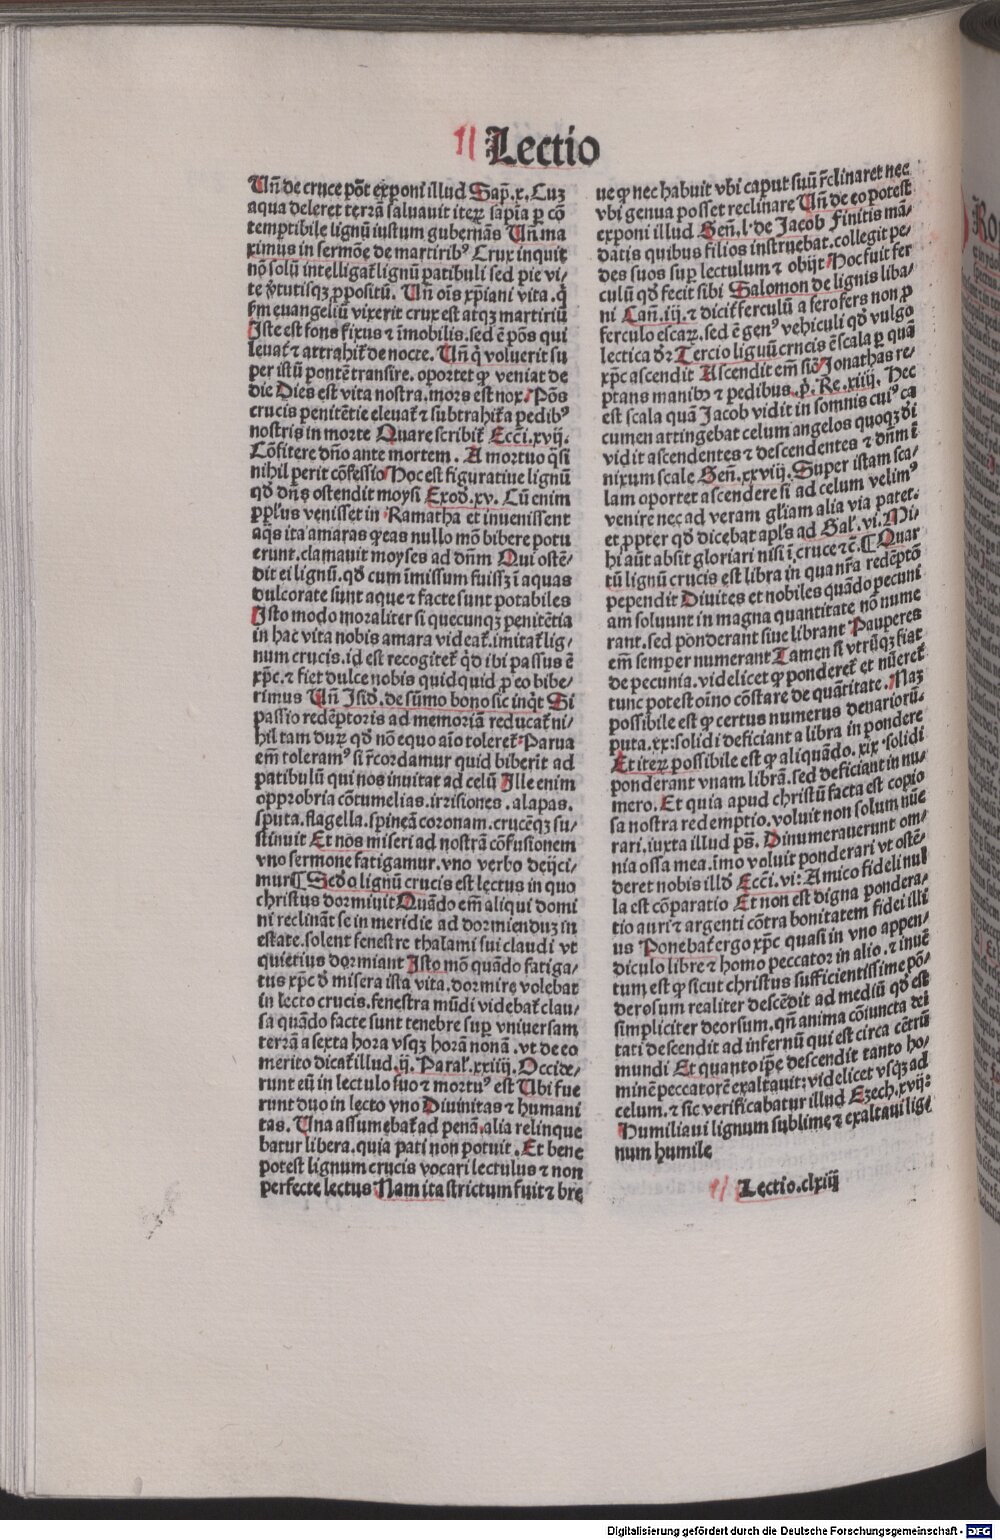 Lectio
Vn̄ de cruce pōt exponi illud Sap̄. x. Cuz
aqua deleret terrā saluauit iterꝝ sapīa ꝑ cō
temptibile lignū iustum gubernās Vn̄ ma
ximus in sermōe de martiribꝰ Crux inquit
nō solū intelligat̄ lignū patibuli sed pie vi⸗
te v̓tutisqꝫ ꝓpositū. Vn̄ oīs xp̄iani vita. q̇
ẜm euangeliū vixerit crux est atqꝫ martiriū
Iste est fons fixus ⁊ īmobilis. sed ē pōs qui
leuat̄ ⁊ attrahit̄ de nocte. Vn̄ q̇ voluerit su
per istū pontē transire. oportet ꝙ veniat de
die Dies est vita nostra. mors est nox. Pōs
crucis penitētie eleuat̄ ⁊ subtrahit̄ a pedibꝰ
nostris in morte Quare scribit̄ Ecc̄i. xvij.
Cōfitere dn̄o ante mortem. A mortuo q̄si
nihil perit cōfessio Hoc est figuratiue lignū
qd̄ dn̄s ostendit moysi Exod̄. xv. Cū enim
ppl̄us venisset in Ramatha et inuenissent
aq̄s ita amaras ꝙ eas nullo mō bibere potu
erunt. clamauit moyses ad dn̄m Qui ostē⸗
dit ei lignū. qd̄ cum īmissum fuissꝫ ī aquas
dulcorate sunt aque ⁊ facte sunt potabiles
Isto modo moraliter si quecunqꝫ penitētia
in hac vita nobis amara videat̄. imitat̄ lig⸗
num crucis. id est recogitet̄ qd̄ ibi passus ē
xp̄c. ⁊ fiet dulce nobis quidquid ꝑ eo bibe⸗
rimus Vn̄ Isid̄. de sūmo bono sic inq̇t Si
passio redēptoris ad memoriā reducat̄ ni⸗
hil tam durꝝ qd̄ nō equo aīo toleret̄ Parua
em̄ toleramꝰ si r̄cordamur quid biberit ad
patibulū qui nos inuitat ad celū Ille enim
opprobria cōtumelias. irrisiones. alapas.
sputa. flagella. spineā coronam. crucēqꝫ su⸗
stinuit Et nos miseri ad nostrā cōfusionem
vno sermone fatigamur. vno verbo deijci⸗
mur ¶ Secd̄o lignū crucis est lectus in quo
christus dormiuit Quādo em̄ aliqui domi
ni reclināt se in meridie ad dormienduꝫ in
estate. solent fenestre thalami sui claudi vt
quietius dormiant Isto mō quādo fatiga⸗
tus xp̄c d̓ misera ista vita. dormire volebat
in lecto crucis. fenestra mūdi videbat̄ clau⸗
sa quādo facte sunt tenebre suꝑ vniuersam
terrā a sexta hora vsqꝫ horā nonā. vt de eo
merito dicat̄ illud. ij. Paral̄. xxiiij. Occide⸗
runt eū in lectulo suo ⁊ mortuꝰ est Vbi fue
runt duo in lecto vno Diuinitas ⁊ humani
tas. Vna assumebat̄ ad penā. alia relinque
batur libera. quia pati non potuit. Et bene
potest lignum crucis vocari lectulus ⁊ non
perfecte lectus Nam ita strictum fuit ⁊ bre
ue ꝙ nec habuit vbi caput suū r̄clinaret nec
vbi genua posset reclinare Vn̄ de eo potest
exponi illud Gen̄. l. de Jacob Finitis mā⸗
datis quibus filios instruebat. collegit pe⸗
des suos suꝑ lectulum ⁊ obijt Hoc fuit fer
culū qd̄ fecit sibi Salomon de lignis liba⸗
ni Can̄. iij. ⁊ dicit̄ ferculū a fero fers non ꝓ
ferculo escarꝝ. sed ē genꝰ vehiculi qd̄ vulgo
lectica dr̄ Tercio lignū crucis ē scala ꝑ quā
xp̄c ascendit Ascendit em̄ sic̄ Jonathas re⸗
ptans manibꝫ ⁊ pedibus. p̄. Re. xiiij. Hec
est scala quā Jacob vidit in somnis cuiꝰ ca
cumen attingebat celum angelos quoqꝫ d̓i
vidit ascendentes ⁊ descendentes ⁊ dn̄m ī
nixum scale Gen̄. xxviij. Super istam sca⸗
lam oportet ascendere si ad celum velimꝰ
venire nec ad veram gl̄iam alia via patet.
et ꝓpter qd̄ dicebat apl̄s ad Gal̄. vi. Mi⸗
hi aūt absit gloriari nisi ī cruce ⁊c̄. ¶ Quar
tū lignū crucis est libra in qua nr̄a redēptō
pependit Diuites et nobiles quādo pecuni
am soluunt in magna quantitate nō nume
rant. sed ponderant siue librant Pauperes
em̄ semper numerant Tamen si vtrūqꝫ fiat
de pecunia. videlicet ꝙ ponderet̄ et nūeret̄
tunc potest oīno cōstare de quātitate. Naꝫ
possibile est ꝙ certus numerus denariorū.
puta. xx: solidi deficiant a libra in pondere
Et iterꝝ possibile est ꝙ aliquādo. xix. solidi
ponderant vnam librā. sed deficiant in nu⸗
mero. Et quia apud christū facta est copio
sa nostra redemptio. voluit non solum nūe
rari. iuxta illud ps̄. Dinumerauerunt om⸗
nia ossa mea. īmo voluit ponderari vt ostē⸗
deret nobis illd̄ Ecc̄i. vi: Amico fideli nul
la est cōparatio Et non est digna pondera⸗
tio auri ⁊ argenti cōtra bonitatem fidei illi
us Ponebat̄ ergo xp̄c quasi in vno appen⸗
diculo libre ⁊ homo peccator in alio. ⁊ inuē
tum est ꝙ sicut christus sufficientissime pō⸗
derosum realiter descēdit ad mediū qd̄ est
simpliciter deorsum. qn̄ anima cōiuncta dei
tati descendit ad infernū qui est circa cētrū
mundi Et quanto ip̄e descendit tanto ho⸗
minē peccatorē exaltauit: videlicet vsqꝫ ad
celum. ⁊ sic verificabatur illud Ezech. xvij:
Humiliaui lignum sublime ⁊ exaltaui lig⸗
num humile
Lectio. clxiij
Digitalisierung gefördert durch die Deutsche Forschungsgemeinschaft - DFG